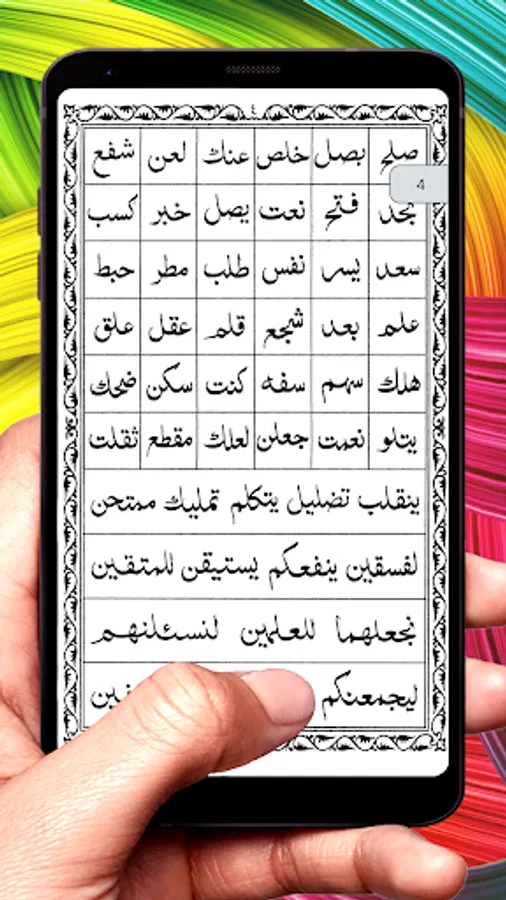 ٤
صلح بصل خلص عنك لعن شفع
4
نجد فتح نعت يصل خبر كسب
سعد يسر نفس طلب مطر حبط
علم بعد شجع قلم عقل علق
هلك سهم سفه كنت سكن ضحك
يتلو نعمت جعلن لعلك مقطع ثقلت
ينقلب تضليل يتكلم تمليك ممتحن
لفسقين ينفعكم يستيقن للمتقين
نجعلهما للعلمين لنسئلنهم
ليجمعنكم